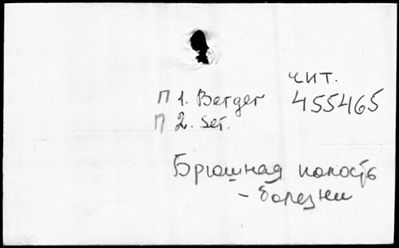 чит.
П 1. Berger 455465
П 2. Ser.
Брюшная полость
- болезни